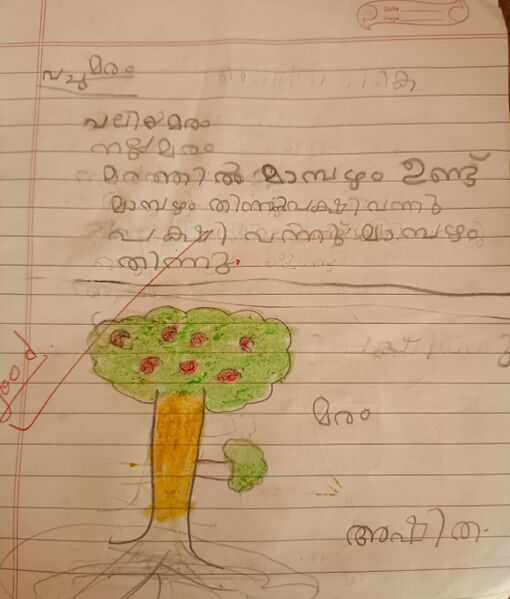 Date
Page
മരം
വലിയമരം
നല്ലമരം
മരത്തിൽ മാമ്പഴം ഉണ്ട്
മാമ്പഴം തിന്നുപക്ഷിവന്നു
പക്ഷി വന്നു മാമ്പഴം
തിന്നു.
good
മരം